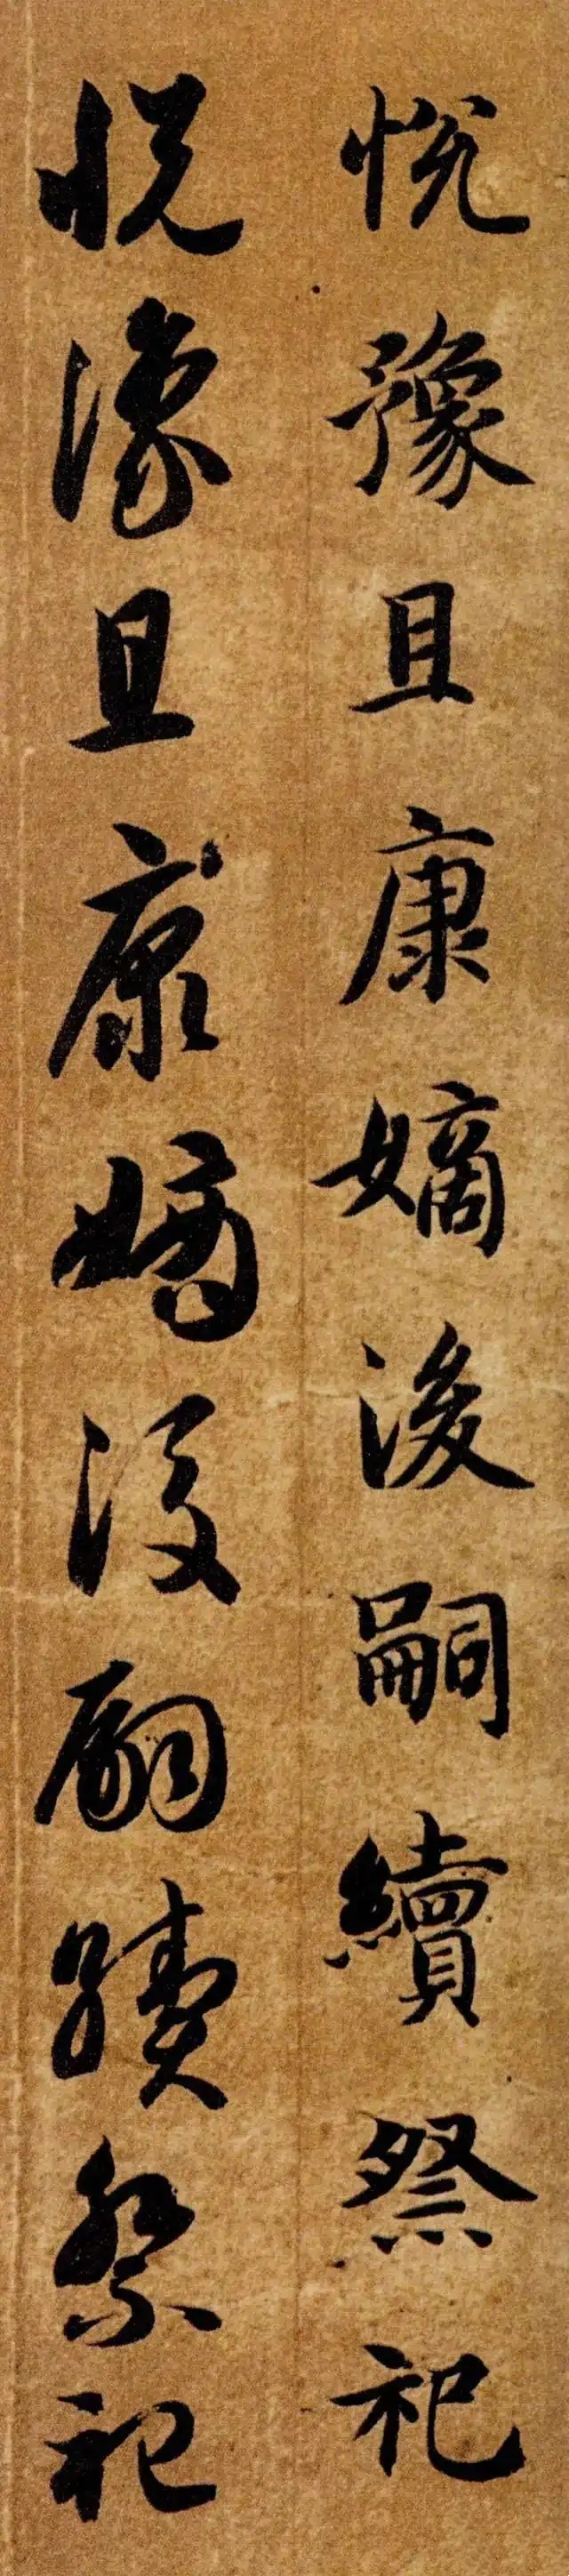 悅豫且康嫡後嗣續祭祀
悅豫且康嫡後嗣續祭祀